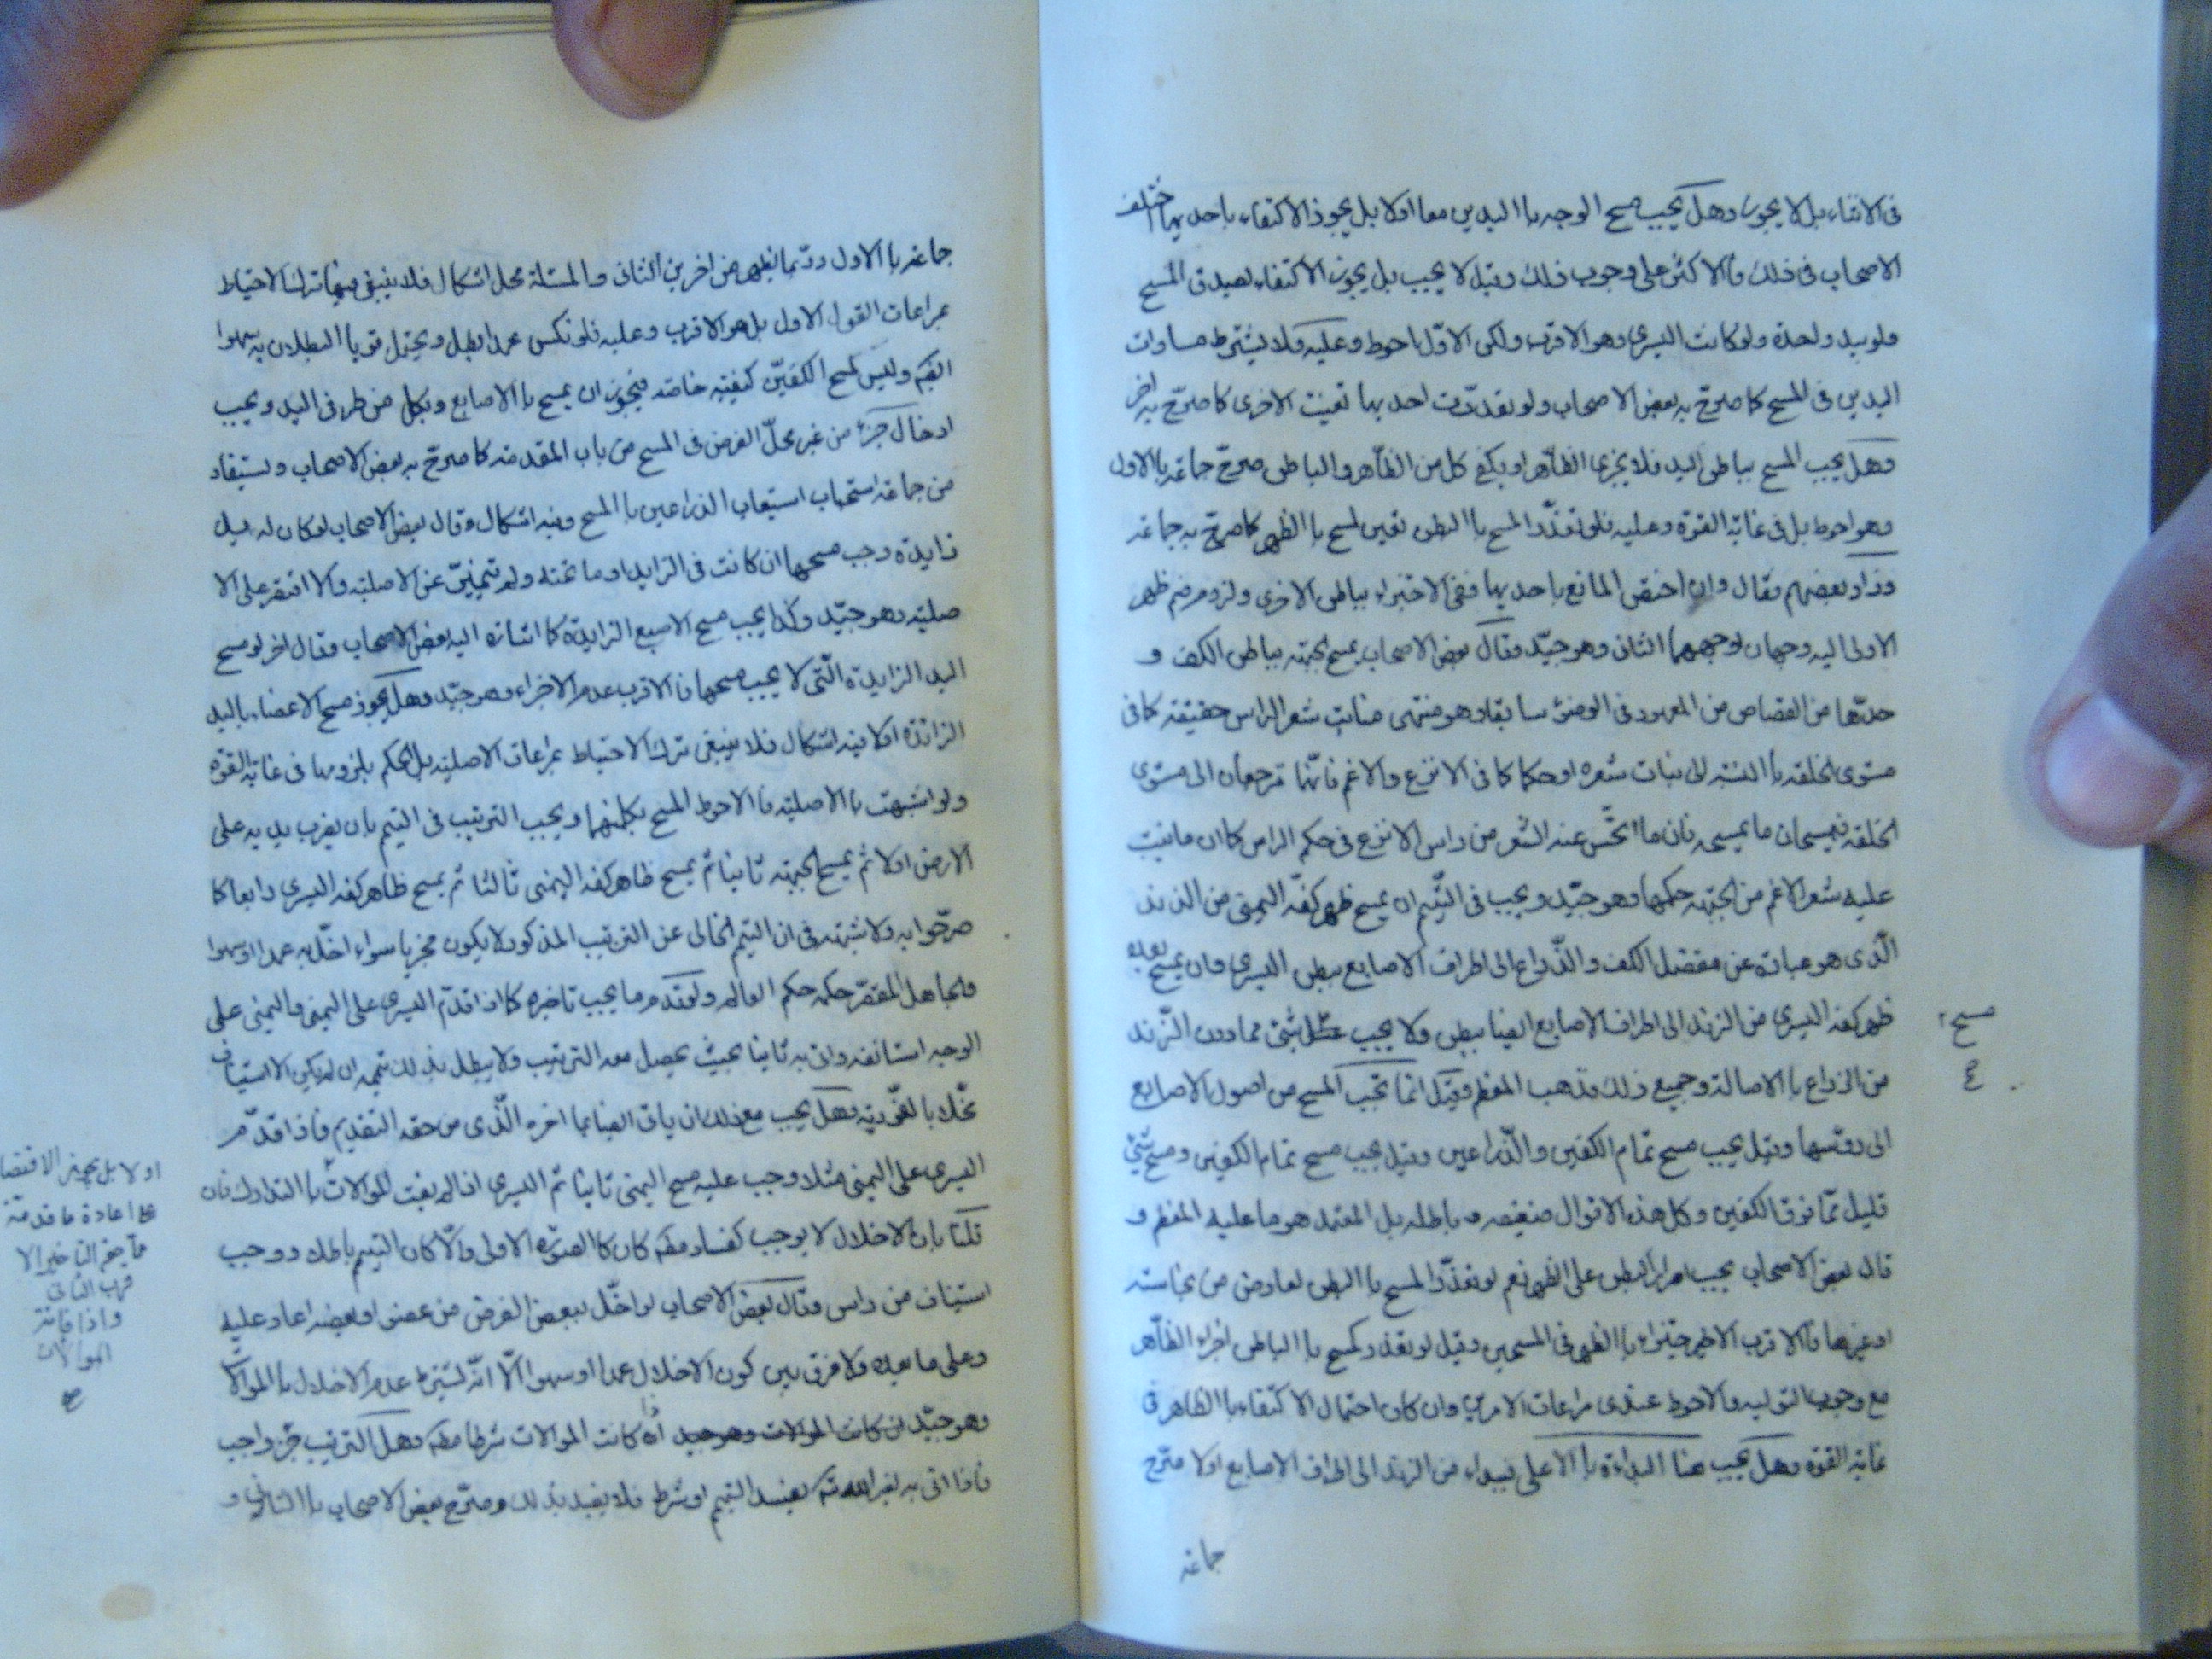 في الاثناء بل لا يجوز وهل يجب مسح الوجه با اليدين معا اولا بل يجوز الاكتفاء باحديهما اختلف
الاصحاب في ذلك فالاكثر على وجوب ذلك وقيل لا يجب بل يجوز الاكتفاء بصدق المسح
ولو بيد واحدة ولو كانت اليسرى وهو الاقرب ولكن الاول احوط وعليه فلا يشترط مساوات
اليدين في المسح كما صرح به بعض الاصحاب ولو تعذرت احديهما تعينت الاخرى كما صرح به اخر
وهل يجب المسح بباطن اليد فلا يجزى الظاهر او يكفى كل من الظاهر والباطن صرح جماعة با الاول
وهو احوط بل في غاية القوة وعليه فلو تعذر المسح با البطن تعين المسح با الظهر كما صرح به جماعة
وزاد بعضهم فقال وان اختص المانع باحديهما ففى الاجتزاء بباطن الاخرى ولزوم ضم ظهر
الاولى اليه وجهان اوجههما الثانى وهو جيد وقال بعض الاصحاب يمسح الجبهة بباطن الكف و
حدها من القصاص من المعهود في الوضوء سابقا وهو منتهى منابت شعر الراس حقيقة كما في
مستوى الخلقة با النسبة الى نبات شعره او حكما كما في الانزع والاغم فانهما ترجعان الى مستوى
الخلقة فيمسحان ما يمسحه فان ما انحسر عنه الشعر من راس الانزع في حكم الراس كما ان ما نبت
عليه شعر الاغم من الجبهة حكمها وهو جيد ويجب في التيمم ان يمسح ظهر كفه اليمنى من الزند
الذى هو عبارة عن مفصل الكف والذراع الى اطراف الاصابع ببطن اليسرى وان يمسح بعده
ظهر كفه اليسرى من الزند الى اطراف الاصابع ايضا ببطن ولا يجب شئ مما دون الزند
مسح
من الذراع با الاصالة وجميع ذلك مذهب المعظم وقيل انما يجب المسح من اصول الاصابع
الى رؤسها وقيل يجب مسح تمام الكفين والذراعين وقيل يجب مسح تمام الكفين ومسح شئ
قليل مما فوق الكفين وكل هذه الاقوال ضعيفة و باطلة بل المعتمد هو ما عليه المعظم و
قال بعض الاصحاب يجب امرار البطن على الظهر نعم لو تعذر المسح با البطن لعارض من نجاسة
او غيرها فالاقرب الاجتزاء با الظهر في المسحين وقيل لو تعذر المسح با الباطن اجزاء الظاهر
مع وجوب التولية والاحوط عندى مراعات الامرين وان كان احتمال الاكتفاء با الظاهر في
غاية القوة وهل يجب هنا البداءة با الاعلى فيبداء من الزند الى اطراف الاصابع اولا صرح
جماعة
جماعة با الاول وربما يظهر من اخرين الثانى والمسئلة محل اشكال فلا ينبغى فيها ترك الاحتياط
بمراعات القول الاول بل هو الاقرب وعليه فلو نكس عمدا بطل ويحتمل قويا البطلان به سهوا
ايضا وليس لمسح الكفين كيفية خاصة فيجوز ان يمسح با الاصابع وبكل من طرفى اليد ويجب
ادخال جزء من غير محل الفرض في المسح من باب المقدمة كما صرح به بعض الاصحاب ويستفاد
من جماعة استحباب استيعاب الذراعين با المسح وفيه اشكال وقال بعض الاصحاب لو كان له يد
زايدة وجب مسحها ان كانت في الزايد او ما تحته ولم تتميز عن الاصلية والا اقتصر على الا
صلية وهو جيد وكذا يجب مسح الاصبع الزايدة كما اشار اليه بعض الاصحاب وقال اخر لو مسح
اليد الزايدة التى لا يجب مسحها فالاقرب عدم الاجزاء وهو جيد وهل يجوز مسح الاعضاء باليد
الزائدة اولا فيه اشكال فلا ينبغى ترك الاحتياط بمراعات الاصلية بل الحكم بلزومها في غاية القوة
ولو اشتبهت با الاصلية فا الاحوط المسح بكلتيهما ويجب الترتيب في التيمم بان يضرب يديه على
الارض اولا ثم يمسح الجبهة ثانيا ثم يمسح ظاهر كفه اليمنى ثالثا ثم يمسح ظاهر كفه اليسرى رابعا كما
صرحوا به ولا شبهة في ان التيمم الخالى عن الترتيب المذكور لا يكون مجزيا سواء اخل به عمدا او سهوا
والجاهل المقصر حكمه حكم العالم ولو قدم ما يجب تاخيره كما اذا قدم اليسرى على اليمنى واليمنى على
الوجه استانفه واتى به ثانيا بحيث يحصل معه الترتيب ولا يبطل بذلك تيممه ان لم يكن الاستيناف
مخلا با الفورية وهل يجب مع ذلك ان ياتى ايضا بما اخره الذى من حقه التقديم فاذا قدم
اليسرى على اليمنى مثلا وجب عليه مسح اليمنى ثانيا ثم اليسرى اذا لم يفت الموالات با التدارك فان
اولا بل يجوز الاقتصا
على اعادة ما قدمه
مما حقه التاخير الا
قرب الثانى
واذا فاتته
الموالات
قلنا بان الاخلال لا يوجب فساد كان كا الصورة الاولى والا كان التيمم باطلا ووجب
استيناف من راس وقال بعض الاصحاب لو اخل ببعض الفرض من عضو او بعضه اعاد عليه
وعلى ما بعده ولا فرق بين كون الاخلال عمدا او سهوا الا انه يشترط عدم الاخلال با الموالات
وهو جيد ان كانت الموالات وهو جيد اذا كانت الموالات شرطا وهل الترتيب جزء واجب
فاذا اتى به لغير الله يفسد التيمم او شرط فلا يفسد بذلك وصرح بعض الاصحاب با الثانى و